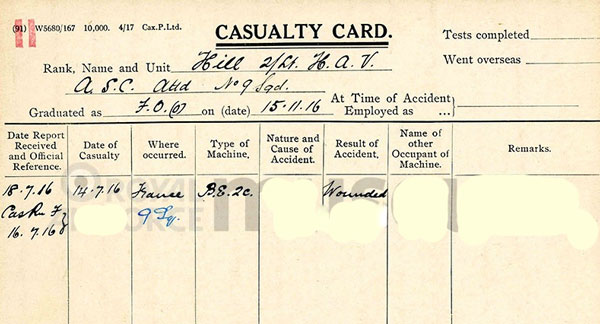 (91) W5680/167 10,000. 4/17 Cax.P.Ltd.
CASUALTY CARD.
Tests completed
Went overseas
Rank, Name and Unit Hill 2/Lt. H. A. V.
A.S.C. Attd No 9 Sqd.
Graduated as F.O.(O) on (date) 15.11.16
At Time of Accident Employed as ...
Date Report Received and Official Reference.
Date of Casualty
Where occurred.
Type of Machine.
Nature and Cause of Accident.
Result of Accident,
Name of other Occupant of Machine.
Remarks.
18.7.16 14.7.16 France B.E.2c. Wounded
9 Sq.
16.7.16